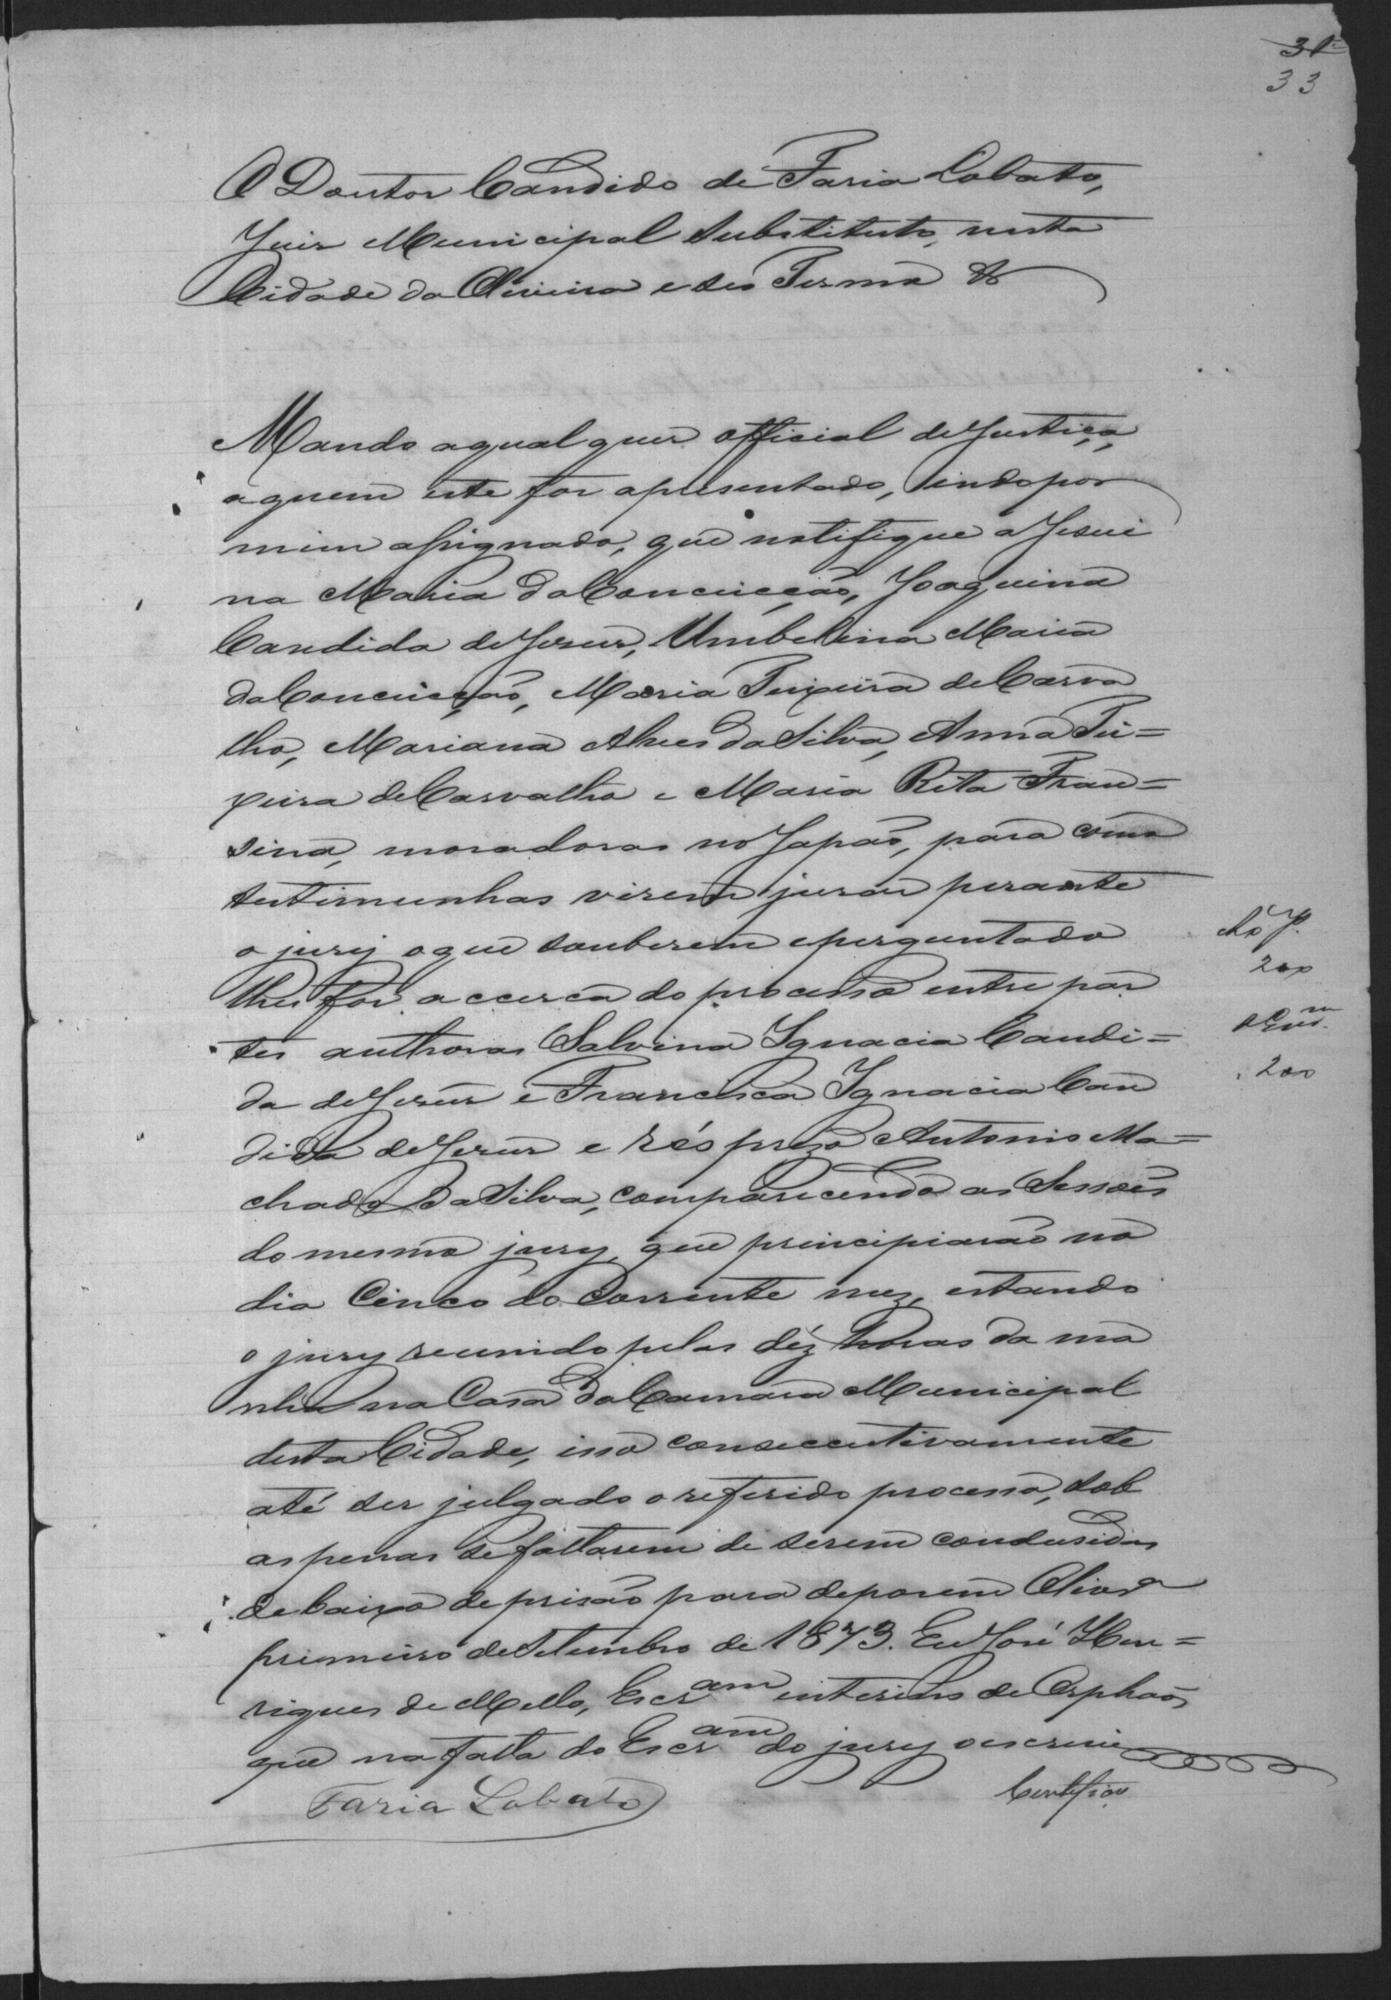 31
33
O Doutor Candido de Faria Lobato,
Juis Municipal Substituto, nesta
Cidade da Oliveira e seo Termo &
Mando aqualquer official deJustiça,
aquem este for apresentado, sindo por
mim assignado, que notifique a Jesui
na Maria daConceicção, Joaquina
Candida deJesus, Umbelina Maria
daConceicção, Maria Teixeira deCarva
lho, Mariana Alves daSilva, Anna Tei=
xeira deCarvalho e Maria Rita Fran=
sina, moradoras no Japão, para como
testimunhas virem jurar perante
o jury oque souberem eperguntado
lhes for a ccerca do processo entre par
tes authoras Salvina Ignacia Candi=
da deJesus e Francisca Ignacia Can
dida deJesus e rés prezo Antonio Ma=
chado daSilva, comparecendo as Sessões
do mesmo jury, que principiarão no
dia Cinco do Corrente mez, estando
o jury reunido pelas déz horas da ma
nhã na Casa daCamara Municipal
desta Cidade, isso consecutivamente
até ser julgado o referido processo, sob
as penas sefaltarem de serem condusidas
debaixo deprisão para deporem Olivrª
primeiro deSetembro de 1873. Eu José Hen=
riques de Mello, Escram interino de Orphaõs,
que na falta do Escram do jury oescrevi
Faria Lobato
Certifico
200
200